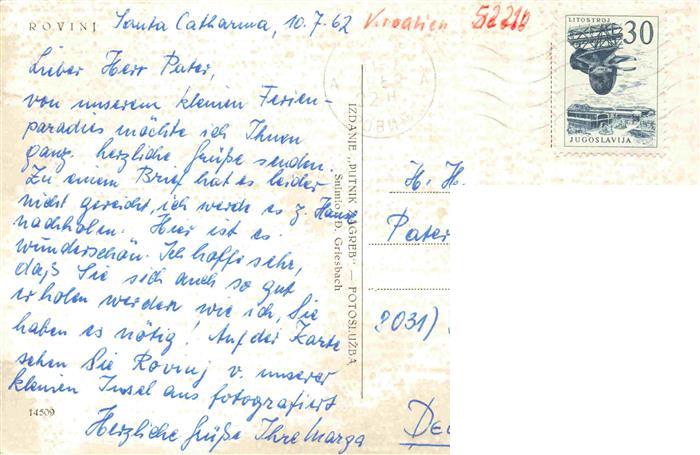 ROVINJ Santa Catharina, 10.7.62 Kroatien 52210
Lieber Herr Pater,
von unserem kleinen Ferien-
paradies möchte ich Ihnen
ganz herzliche Grüße senden.
Zu einem Brief hat es leider
nicht gereicht, ich werde es z. Hause
nachholen. Hier ist es
wunderschön. Ich hoffe sehr,
daß Sie sich auch so gut
erholen werden wie ich, Sie
haben es nötig! Auf der Karte
sehen Sie Rovinj v. unserer
kleinen Insel aus fotografiert
14509
Herzliche Grüße Ihre Marga
IZDANJE „PUTNIK ZAGREB" — FOTOSLUŽBA
Snimio: D. Griesbach
LITOSTROJ 30
JUGOSLAVIJA
H. H.
Pater
2031)